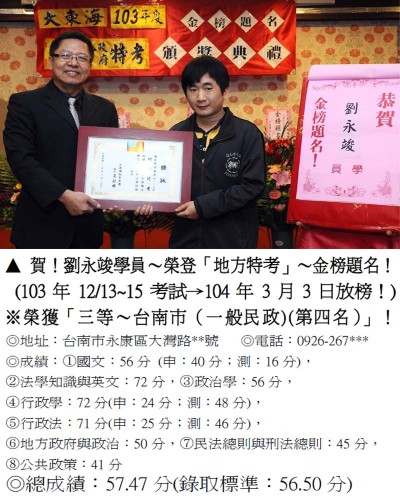 大東海 103年度 金榜題名
政府 特考 頒獎典禮
恭賀
劉永竣
學員
金榜題名！
▲ 賀！劉永竣學員～榮登「地方特考」～金榜題名！
(103 年 12/13~15 考試→104 年 3 月 3 日放榜！)
※榮獲「三等～台南市（一般民政)(第四名）」！
◎地址：台南市永康區大灣路**號　◎電話：0926-267***
◎成績：①國文：56 分 (申：40 分；測：16 分)，
②法學知識與英文：72 分，③政治學：56 分，
④行政學：72 分(申：24 分；測：48 分)，
⑤行政法：71 分(申：25 分；測：46 分)，
⑥地方政府與政治：50 分，⑦民法總則與刑法總則：45 分，
⑧公共政策：41 分
◎總成績：57.47 分(錄取標準：56.50 分)